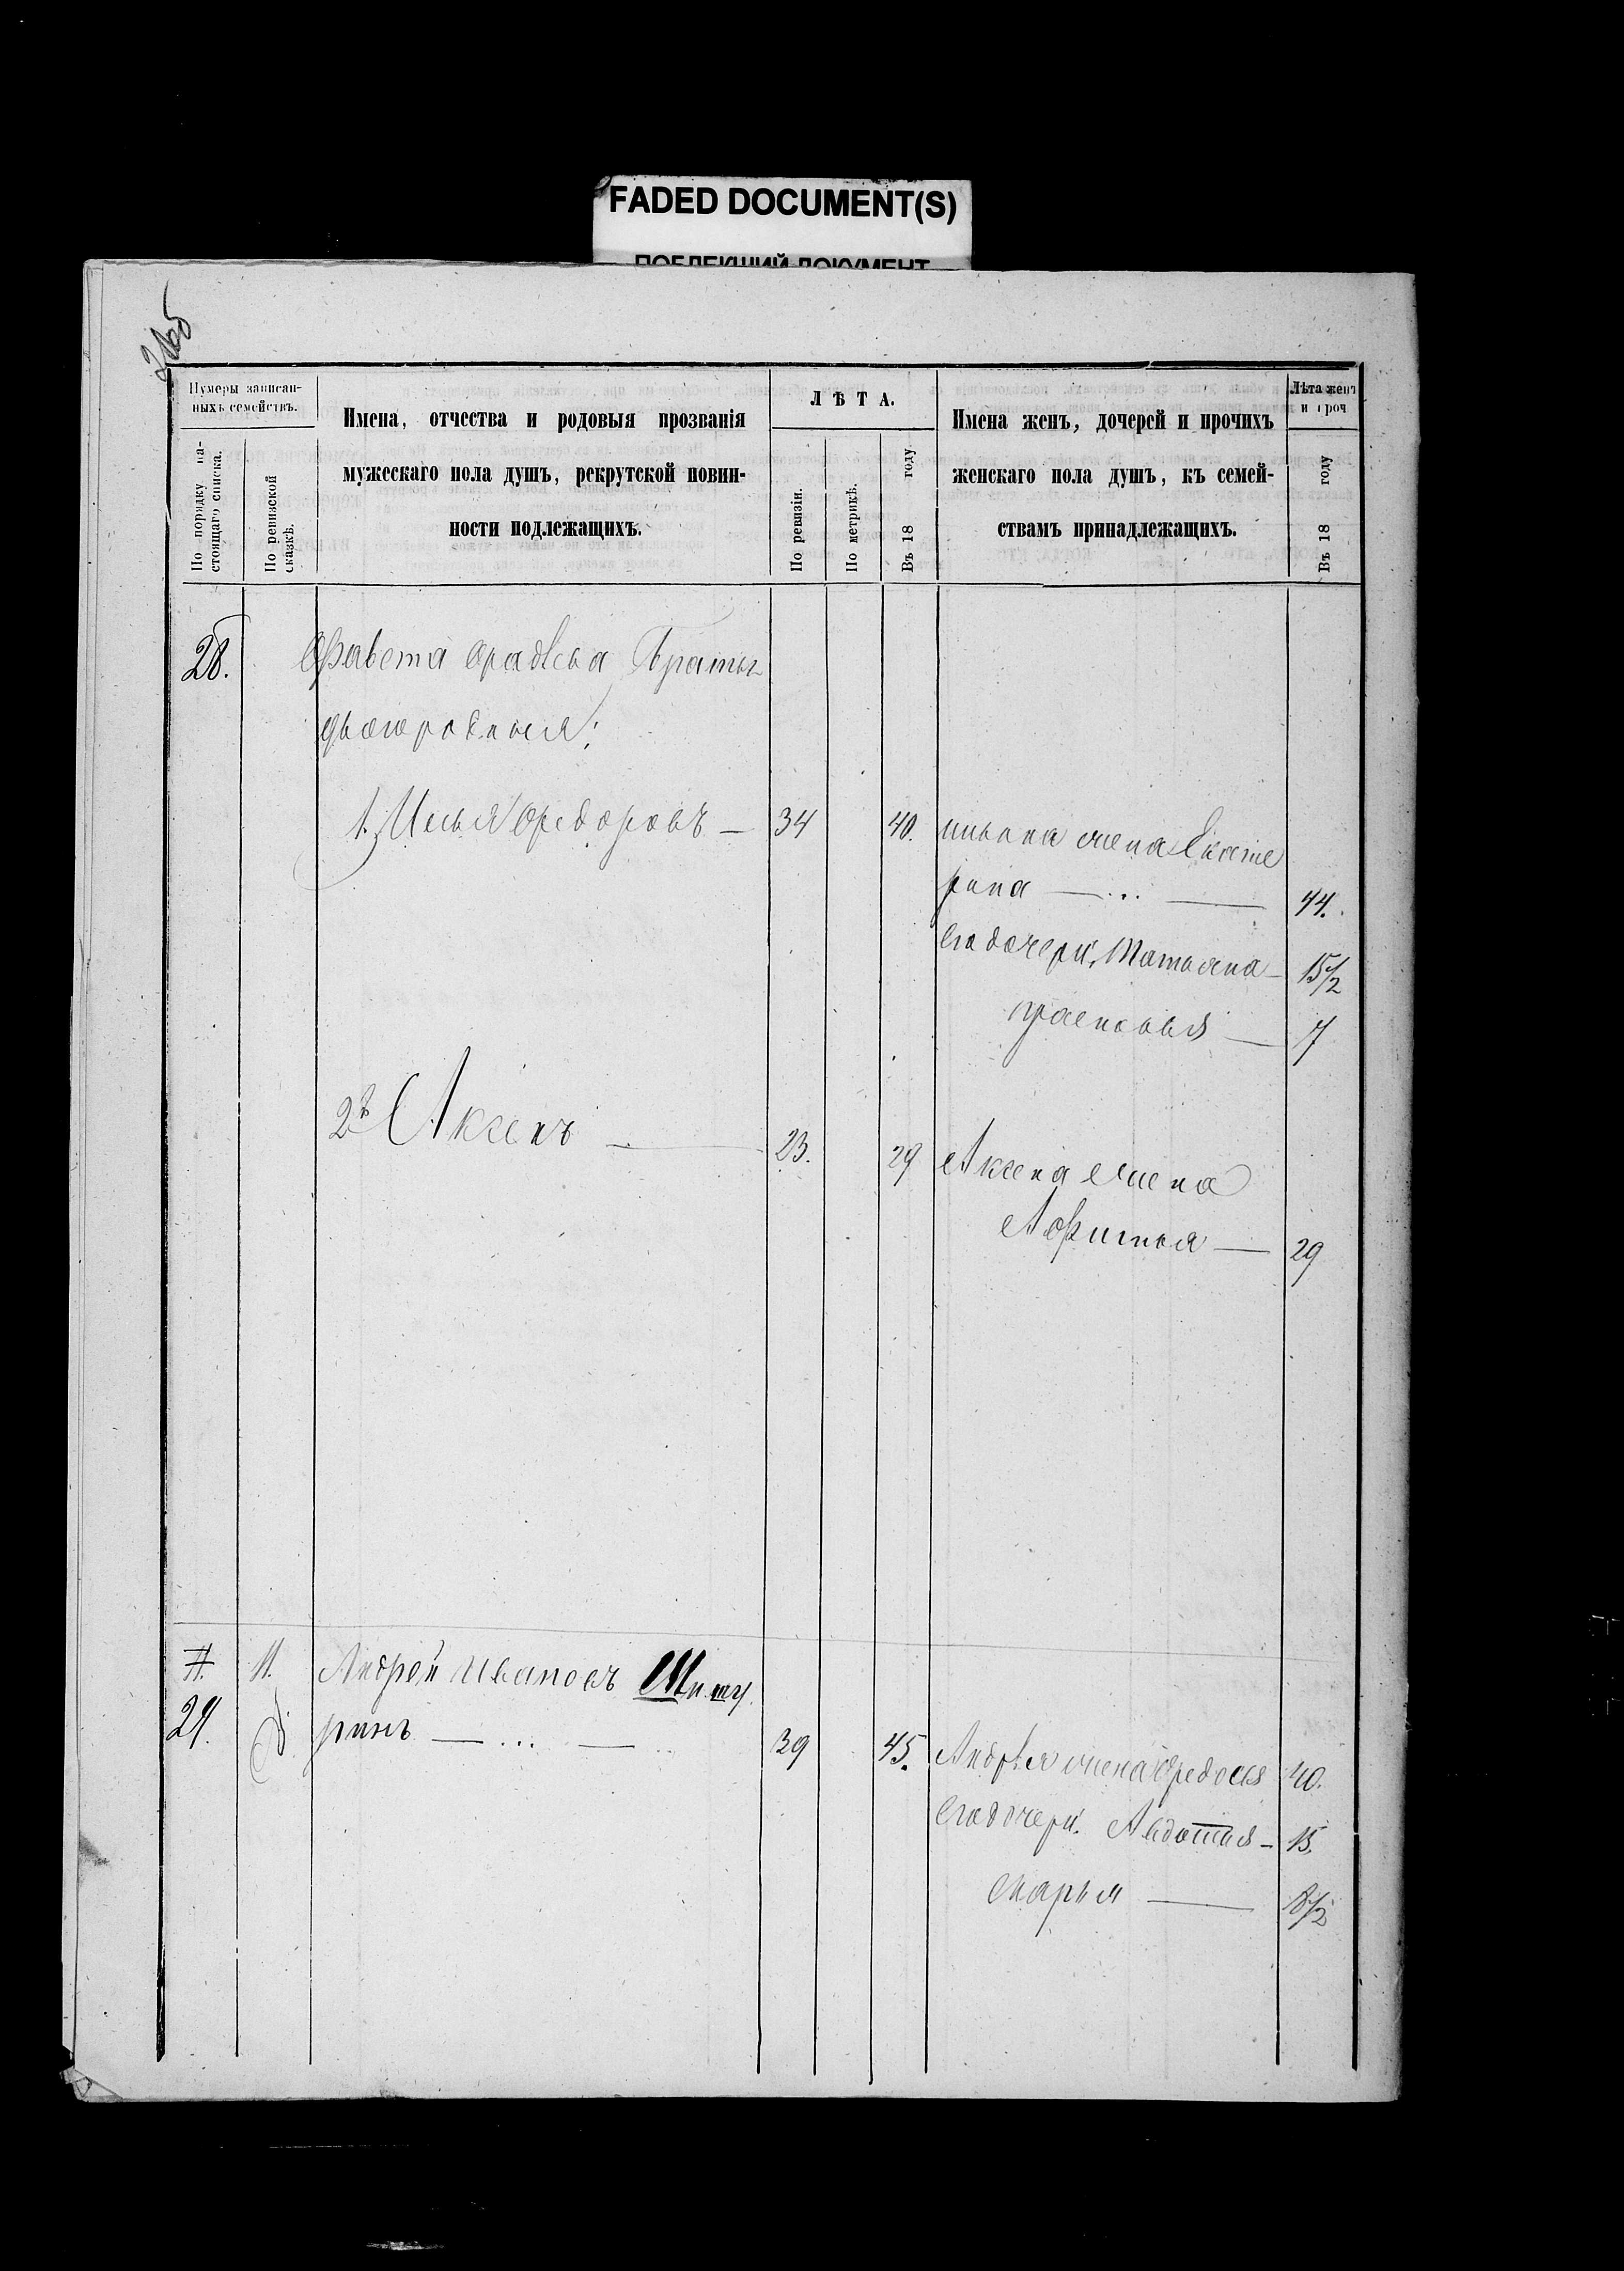 FADED DOCUMENT(S)
ПОБЛЕКШИЙ ДОКУМЕНТ
Нумеры записан-
ныхъ семействъ.
По порядку на-
стоящаго списка.
По ревизской
сказкѣ.
Имена, отчества и родовыя прозванія
мужескаго пола душъ, рекрутской повин-
ности подлежащихъ.
ЛѢТА.
По ревизіи.
По метрикѣ.
Въ 18 году
Имена женъ, дочерей и прочихъ
женскаго пола душъ, къ семей-
ствамъ принадлежащихъ.
Лѣта женъ
и проч
Въ 18 году
28. Братья
двоюродныя:
1. Илья Ѳедоровъ — 34 40. Ильина жена Екате
рина — ... — 44.
Его дочери, Татьяна — 15 1/2
Прасковья — 7
2й Аксенъ — 23. 29 Аксена жена
Афимья — 29
11. Андрей Ивановъ Шишу
29. ринъ — ... — 39 45. Андрея жена Ѳедосья 40.
Его дочери. Авдотья — 15.
Марья — 8 1/2